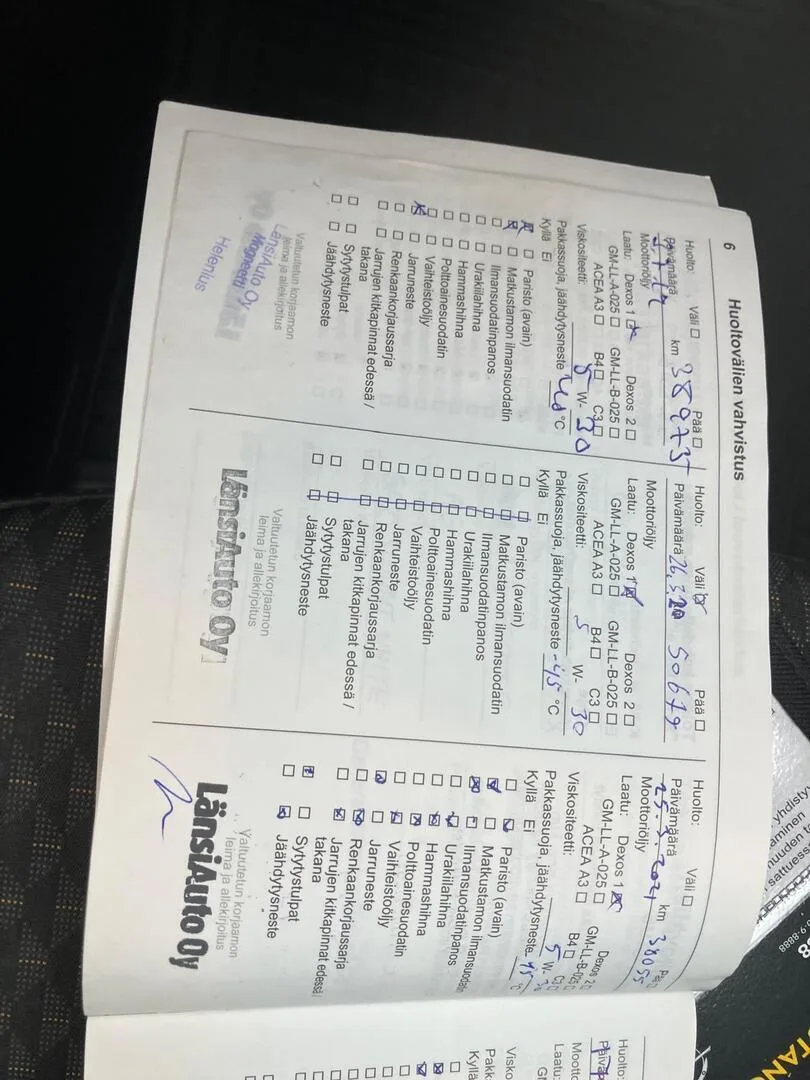 6
Huoltovälien vahvistus
Huolto: Väli ☐ Pää ☐
Päivämäärä km 38973
Moottoriöljy
Laatu: Dexos 1 ☒ Dexos 2 ☐
GM-LL-A-025 ☐ GM-LL-B-025 ☐
ACEA A3 ☐ B4 ☐ C3 ☐
Viskositeetti: 5 W- 30
Pakkassuoja, jäähdytysneste °C
Kyllä Ei
☒ ☐ Paristo (avain)
☒ ☐ Matkustamon ilmansuodatin
☐ ☐ Ilmansuodatinpanos
☐ ☐ Urakiilahihna
☐ ☐ Hammashihna
☐ ☐ Polttoainesuodatin
☐ ☐ Vaihteistoöljy
☒ ☐ Jarruneste
☐ ☐ Renkaankorjaussarja
☐ ☐ Jarrujen kitkapinnat edessä /
takana
☐ ☐ Sytytystulpat
☐ ☐ Jäähdytysneste
Valtuutetun korjaamon
leima ja allekirjoitus
LänsiAuto Oy
Helenius
Huolto: Väli ☒ Pää ☐
Päivämäärä 26.3.20 50679
Moottoriöljy
Laatu: Dexos 1 ☒ Dexos 2 ☐
GM-LL-A-025 ☐ GM-LL-B-025 ☐
ACEA A3 ☐ B4 ☐ C3 ☐
Viskositeetti: 5 W- 30
Pakkassuoja, jäähdytysneste -45 °C
Kyllä Ei
☐ ☐ Paristo (avain)
☐ ☐ Matkustamon ilmansuodatin
☐ ☐ Ilmansuodatinpanos
☐ ☐ Urakiilahihna
☐ ☐ Hammashihna
☐ ☐ Polttoainesuodatin
☐ ☐ Vaihteistoöljy
☐ ☐ Jarruneste
☐ ☐ Renkaankorjaussarja
☐ ☐ Jarrujen kitkapinnat edessä /
takana
☐ ☐ Sytytystulpat
☐ ☐ Jäähdytysneste
Valtuutetun korjaamon
leima ja allekirjoitus
LänsiAuto Oy
Huolto: Väli ☐
Päivämäärä 25.3.2021 km 38055
Moottoriöljy
Laatu: Dexos 1 ☒ Dexos 2 ☐
GM-LL-A-025 ☐ GM-LL-B-025 ☐
ACEA A3 ☐ B4 ☐ C3 ☐
Viskositeetti: 5 W-
Pakkassuoja, jäähdytysneste -45 °C
Kyllä Ei
☐ ☒ Paristo (avain)
☒ ☐ Matkustamon ilmansuodatin
☒ ☐ Ilmansuodatinpanos
☐ ☒ Urakiilahihna
☐ ☒ Hammashihna
☐ ☒ Polttoainesuodatin
☐ ☒ Vaihteistoöljy
☒ ☐ Jarruneste
☐ ☒ Renkaankorjaussarja
☐ ☒ Jarrujen kitkapinnat edessä /
takana
☒ ☐ Sytytystulpat
☐ ☒ Jäähdytysneste
Valtuutetun korjaamon
leima ja allekirjoitus
LänsiAuto Oy
Huolto:
Laatu:
Kyllä